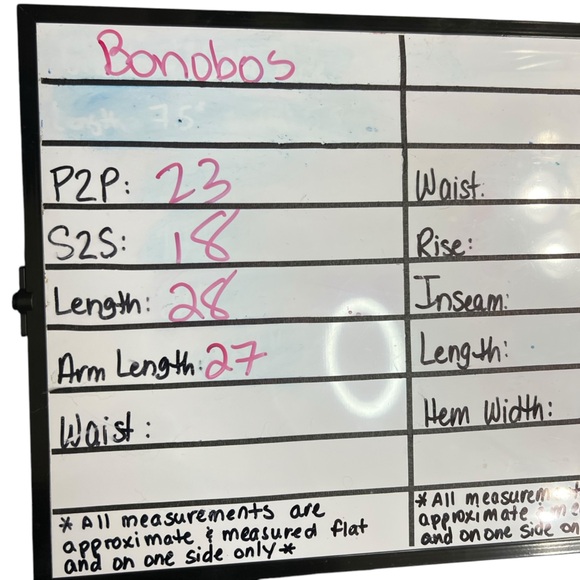 Bonobos
P2P: 23
S2S: 18
Length: 28
Arm Length: 27
Waist:
* All measurements are
approximate & measured flat
and on one side only *
Waist:
Rise:
Inseam:
Length:
Hem Width:
* All
approximate
and on one side